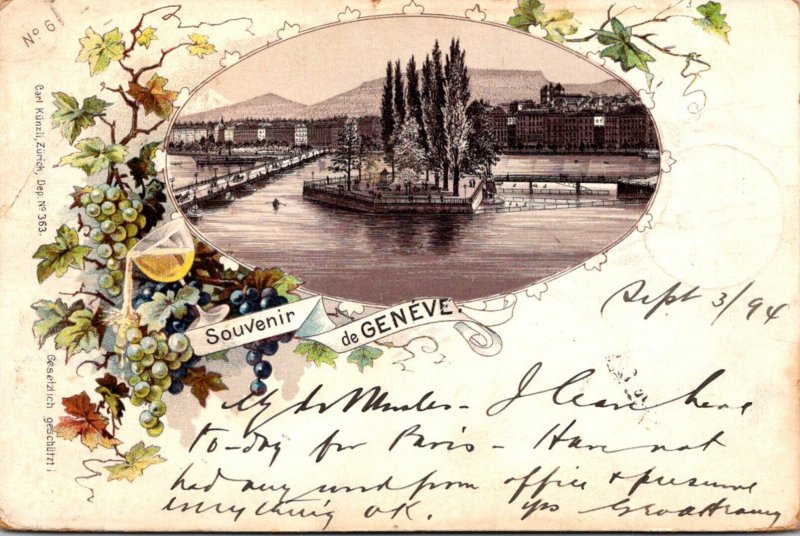 No. 6
Carl Künzli, Zürich, Dep. No 363.
Gesetzlich geschützt!
Souvenir de GENÈVE.
Sept 3/94
My dr - I leave here
to-day for Paris - Have not
had any word from office & presume
everything OK. yrs